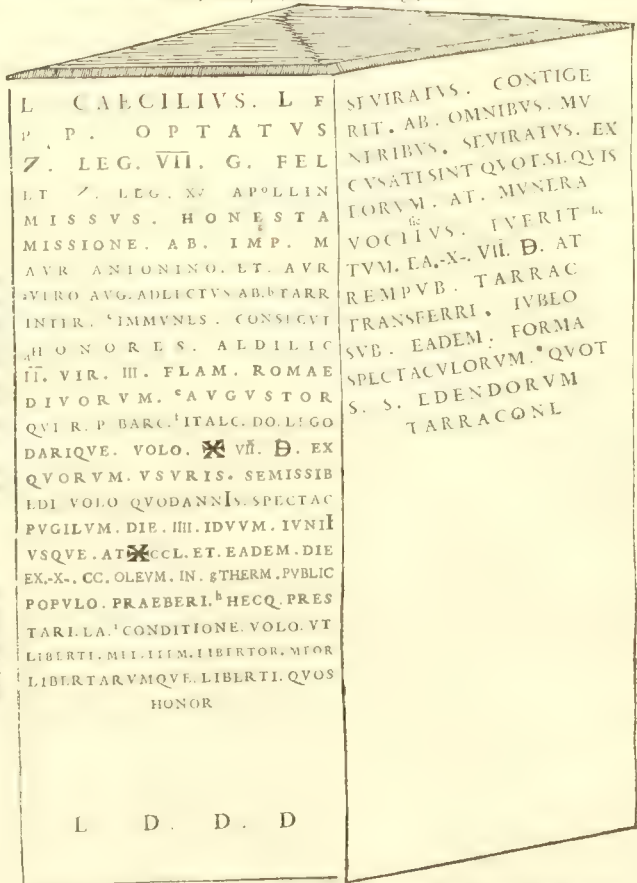 L CAECILIVS. L F
P. P. OPTATVS
7. LEG. VII. G. FEL
ET 7. LEG. XV APOLLIN
MISSVS. HONESTA
MISSIONE. AB. IMP. M
AVR ANTONINO. ET. AVR
VERO AVG. ADLECTVS AB. TARR
INTER. IMMVNES. CONSECVT
HONORES. AEDILIC
II. VIR. III. FLAM. ROMAE
DIVORVM. AVGVSTOR
QVI R. P BARC. ITALC. DO. LEGO
DARIQVE. VOLO. X VII. D. EX
QVORVM. VSVRIS. SEMISSIB
EDI VOLO QVODANNIS. SPECTAC
PVGILVM. DIE. IIII. IDVVM. IVNII
VSQVE. AT X CCL. ET. EADEM. DIE
EX.-X-. CC. OLEVM. IN. g THERM. PVBLIC
POPVLO. PRAEBERI. h HECQ. PRES
TARI. EA. i CONDITIONE. VOLO. VT
LIBERTI. MEI. ITEM. LIBERTOR. MEOR
LIBERTARVMQVE. LIBERTI. QVOS
HONOR
L D. D. D
SEVIRATVS. CONTIGE
RIT. AB. OMNIBVS. MV
NERIBVS. SEVIRATVS. EX
CVSATI SINT QVOT. SI. QVIS
EORVM. AT. MVNERA
VOCITVS. FVERIT
TVM. EA.-X-. VII. D. AT
REMPVB. TARRAC
TRANSFERRI. IVBEO
SVB. EADEM. FORMA
SPECTACVLORVM. QVOT
S. S. EDENDORVM
TARRACONE